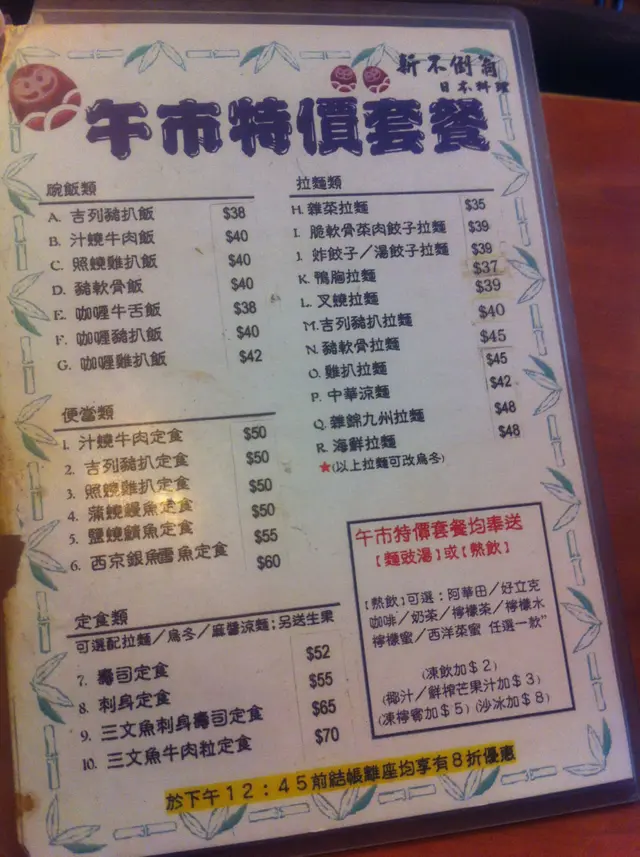 新不倒翁
日本料理
午市特價套餐
碗飯類
A. 吉列豬扒飯 $38
B. 汁燒牛肉飯 $40
C. 照燒雞扒飯 $40
D. 豬軟骨飯 $40
E. 咖喱牛舌飯 $38
F. 咖喱豬扒飯 $40
G. 咖喱雞扒飯 $42
便當類
1. 汁燒牛肉定食 $50
2. 吉列豬扒定食 $50
3. 照燒雞扒定食 $50
4. 蒲燒鰻魚定食 $50
5. 鹽燒鯖魚定食 $55
6. 西京銀鱈魚定食 $60
定食類
可選配拉麵／烏冬／麻醬涼麵；另送生果
7. 壽司定食 $52
8. 刺身定食 $55
9. 三文魚刺身壽司定食 $65
10. 三文魚牛肉粒定食 $70
拉麵類
H. 雜菜拉麵 $35
I. 脆軟骨菜肉餃子拉麵 $39
J. 炸餃子／湯餃子拉麵 $39
K. 鴨胸拉麵 $37
L. 叉燒拉麵 $39
M. 吉列豬扒拉麵 $40
N. 豬軟骨拉麵 $45
O. 雞扒拉麵 $45
P. 中華涼麵 $42
Q. 雜錦九州拉麵 $48
R. 海鮮拉麵 $48
★(以上拉麵可改烏冬)
午市特價套餐均奉送
[麵豉湯] 或 [熱飲]
[熱飲] 可選：阿華田／好立克
咖啡／奶茶／檸檬茶／檸檬水
檸檬蜜／西洋菜蜜 任選一款"
(凍飲加＄2)
(椰汁／鮮榨芒果汁加＄3)
(凍檸賓加＄5) (沙冰加＄8)
於下午12：45前結帳離座均享有8折優惠